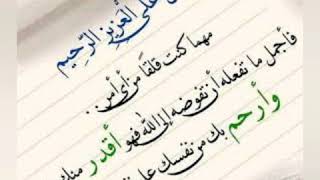 على العزيز الرحيم
مهما كنت قلقًا من أي أمر..
فأجمل ما تفعله أن تفوضه إلى الله فهو أقدر منك
وأرحم بك من نفسك